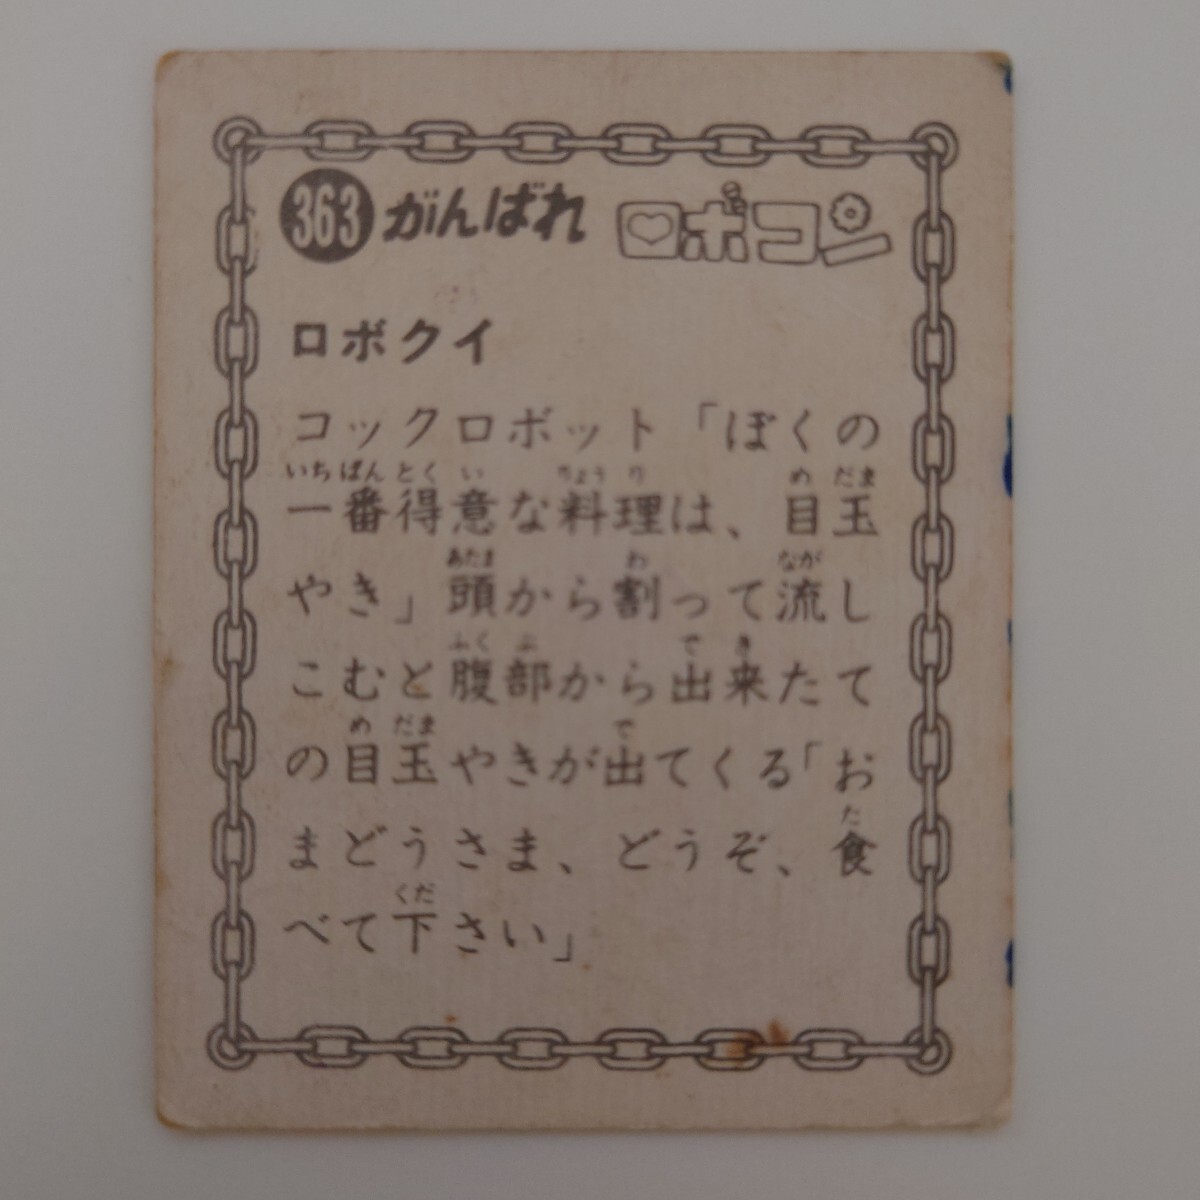 363 がんばれ ロボコン
ロボクイ
コックロボット「ぼくの
一番得意な料理は、目玉
やき」頭から割って流し
こむと腹部から出来たて
の目玉やきが出てくる「お
まどうさま、どうぞ、食
べて下さい」